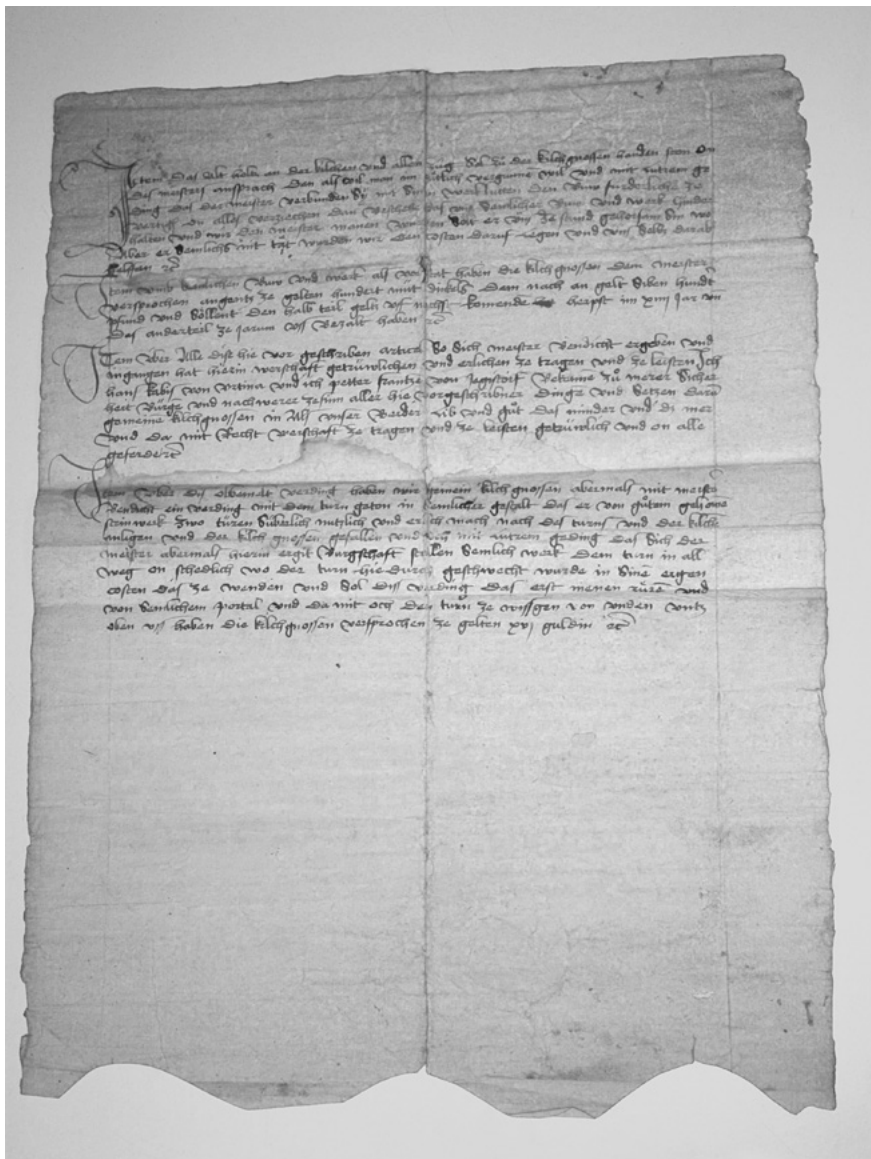 Item Das alt holtz an der kilchen und allen züg Sol zů der kilchgnossen handen ston On
des meisters ansprach den als vil man im gütlich vergunnen wil und mit lutrem ge
ding das der meister verbunden Sy mit Sinen werklütten Den Buw fürderlichen ze
halten und wir den meister manen wurden Solt er uns ze stund gehorsam Sin wo
Aber er Semlichs nit tät wurdet wir den costen daruf legen und uns selbs darab
Item umb semlichen Buw und werk als vor stat haben die kilchgnossen dem meister
versprochen angentz ze gelten hundert mut dinkels Dem nach an gelt Siben hundert
pfund und Söllent Den halb teil geltz uf nechst komende herpst im xiiij jar und
Das ander teil ze jarum uss bezalt haben etc
Item uber Alle disse hie vor geschriben artickel So Sich meister Bendicht ergeben und
angangen hat hierin werschaft getrüwlichen und erlichen ze tragen und ze leisten Ich
hans kabis von urtina und ich petter frantz von Jegistorf Bekennen zů merer Sicher
heit Bürge und nachwerer ze sinn aller hie vorgeschribner Dinge und Setzen darum
gemeine kilchgnossen in Als unser Beider Lib und gůt das minder und di mer
und da mit Recht werschaft ze tragen und ze leisten getrüwlich und on alle
geferdett
Item uber dis obemelt verding haben wir gemein kilchgnossen abermals mit meister
Bendicht ein verding mit dem turn geton in semlicher gestalt Das er von gůtem gehowne
steinwerk zwo türen Suberlich nutzlich und erlich mach nach des turns und der kilchen
anligen und der kilchgnossen gefallen und mit lutrem geding das sich der
meister abermals hierin ergit Burgschaft stellen Semlich werk dem turn in all
weg on schedlich wo der turn hiedurch geschwecht wurde in Sinen eigen
costen das ze wenden und Sol dis verding das erst meinen rüren und
von Semlichem portal und da mit och Den turn ze wissgen von unden untz
oben uss haben die kilchgnossen versprochen ze gelten xvj guldin etc